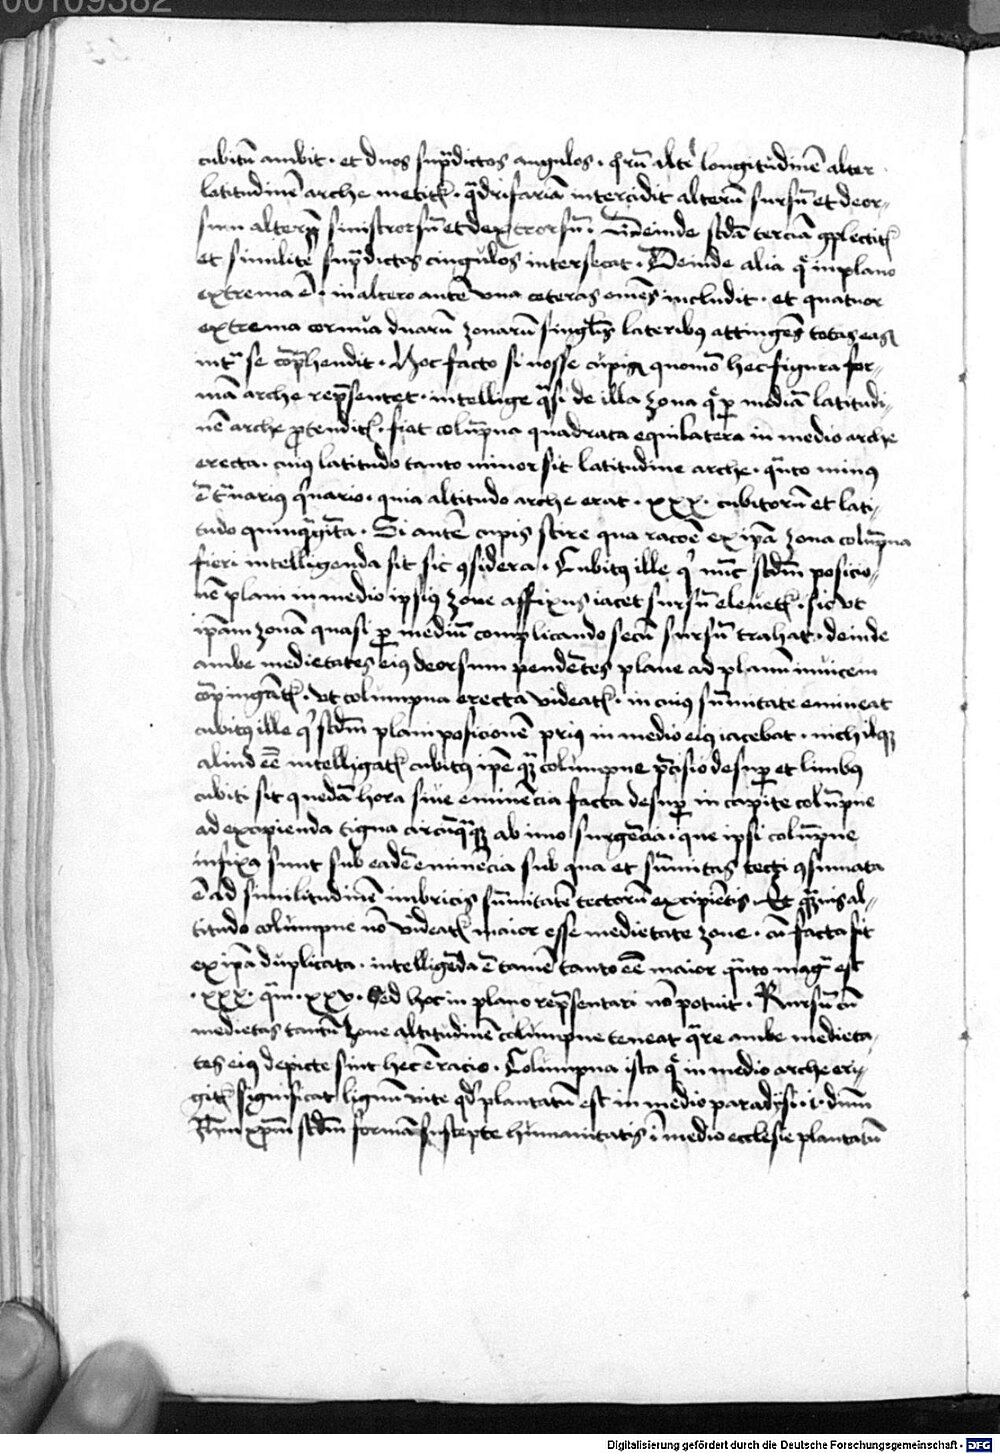 00109382
cubitū ambit · et duos supradictos angulos · qrū altē longitudinē alter
latitudinē arche metitr · qdrifariā intercidit alterū sursū et deor-
sum alterū sinistrorsū et dextrorsū · deinde scdā terciā gplectitr
et similitē supradictos cingulos intersecat · Deinde alia q̄ in plano
extrema ē · in altero autē una ceteras oīnes includit · et quatuor
extrema cornua duarū zonarū singlis lateribus attingēs totas eas
intra se cōprehendit · Hoc facto si nosse cupis quomō hec figura for-
mā arche repsentet · intellige qsi de illa zona q̄ p mediā latitudi-
nē arche protenditr · fiat colūpna quadrata equilatera in medio arche
erecta · cuius latitudo tanto minor sit latitudine arche · qnto minus
ē tnarius qnario · quia altitudo arche erat · xxx · cubitorū et lati-
tudo quinqginta · Si autē cupis scire qua racōe ex ipā zona colūpna
fieri intelligenda sit sic gsidera · Cubitus ille q̄ nūc scdm posicio-
nē plani in medio ipsius zone affixus iacet sursū eleuetr · sic ut
ipam zonā quasi p mediū complicando secū sursū trahat · deinde
ambe medietates eius deorsum pendētes plane ad planū inuicem
cōpingātr · ut columpna erecta videatr · in cuius sūmitate emineat
cubitus ille q̄ scdm plani posicionē prius in medio eius iacebat · nichilqz
aliud eē intelligatr cubitus ipe qz columpne pcisio desup et limbus
cubiti sit quedā hora siue eminēcia facta desup in capite colūpne
ad excipienda tigna circūqqz ab imo surgēcia · que ipsi colūpne
infixa sunt sub eadē eminēcia sub qua et sūmitas tecti gsumata
ē ad similitudinē imbricis sūmitatē tectorū excipiētis · Et qzuis al-
titudo columpne nō videatr maior esse medietate zone · cū facta sit
ex ipā duplicata · intelligēda ē tamē tanto eē maior qnto magis est
· xxx · qm · xxv · Sed hoc in plano repsentari nō potuit · Rursū cū
medietas tantū zone altitudinē columpne teneat qre ambe medieta-
tes eius depicte sint hec ē racio · Columpna ista q̄ in medio arche eri-
gitr significat lignū uite qd plantatū est in medio paradysi · i · dnm
Ihm xpm scdm formā suscepte humanitatis ī medio ecclesie plantatū
Digitalisierung gefördert durch die Deutsche Forschungsgemeinschaft - DFG